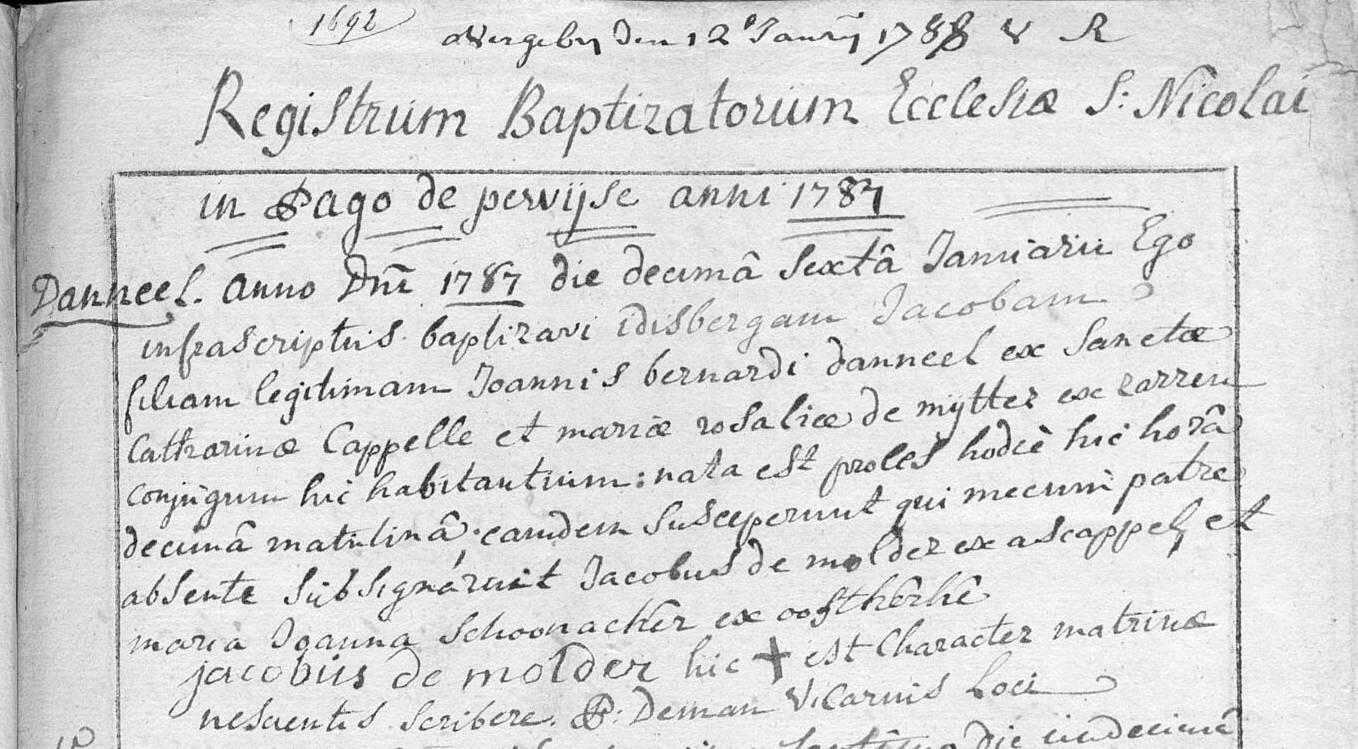 1692
overgebn den 12e Janrij 1788 V R
Registrum Baptizatorum Ecclesiæ S: Nicolai
in Pago de pervijse anni 1787
Danneel. anno Dni 1787 die decimâ sextâ Januarii Ego
infrascriptus baptizavi idisbergam Jacobam
filiam legitimam Joannis bernardi danneel ex Sanctæ
Catharinæ Cappelle et mariæ rosaliæ de mytter ex zarren
conjugum hic habitantium: nata est proles hodiè hic horâ
decimâ matutinâ, eamdem susceperunt qui mecum patre
absente subsignárunt Jacobus de molder ex ascappel, et
maria Joanna Schoonacker ex oostkerke
jacobus de molder hic + est Character matrinæ
nescientis scribere. P: Deman Vicarius Loci
die undecimâ